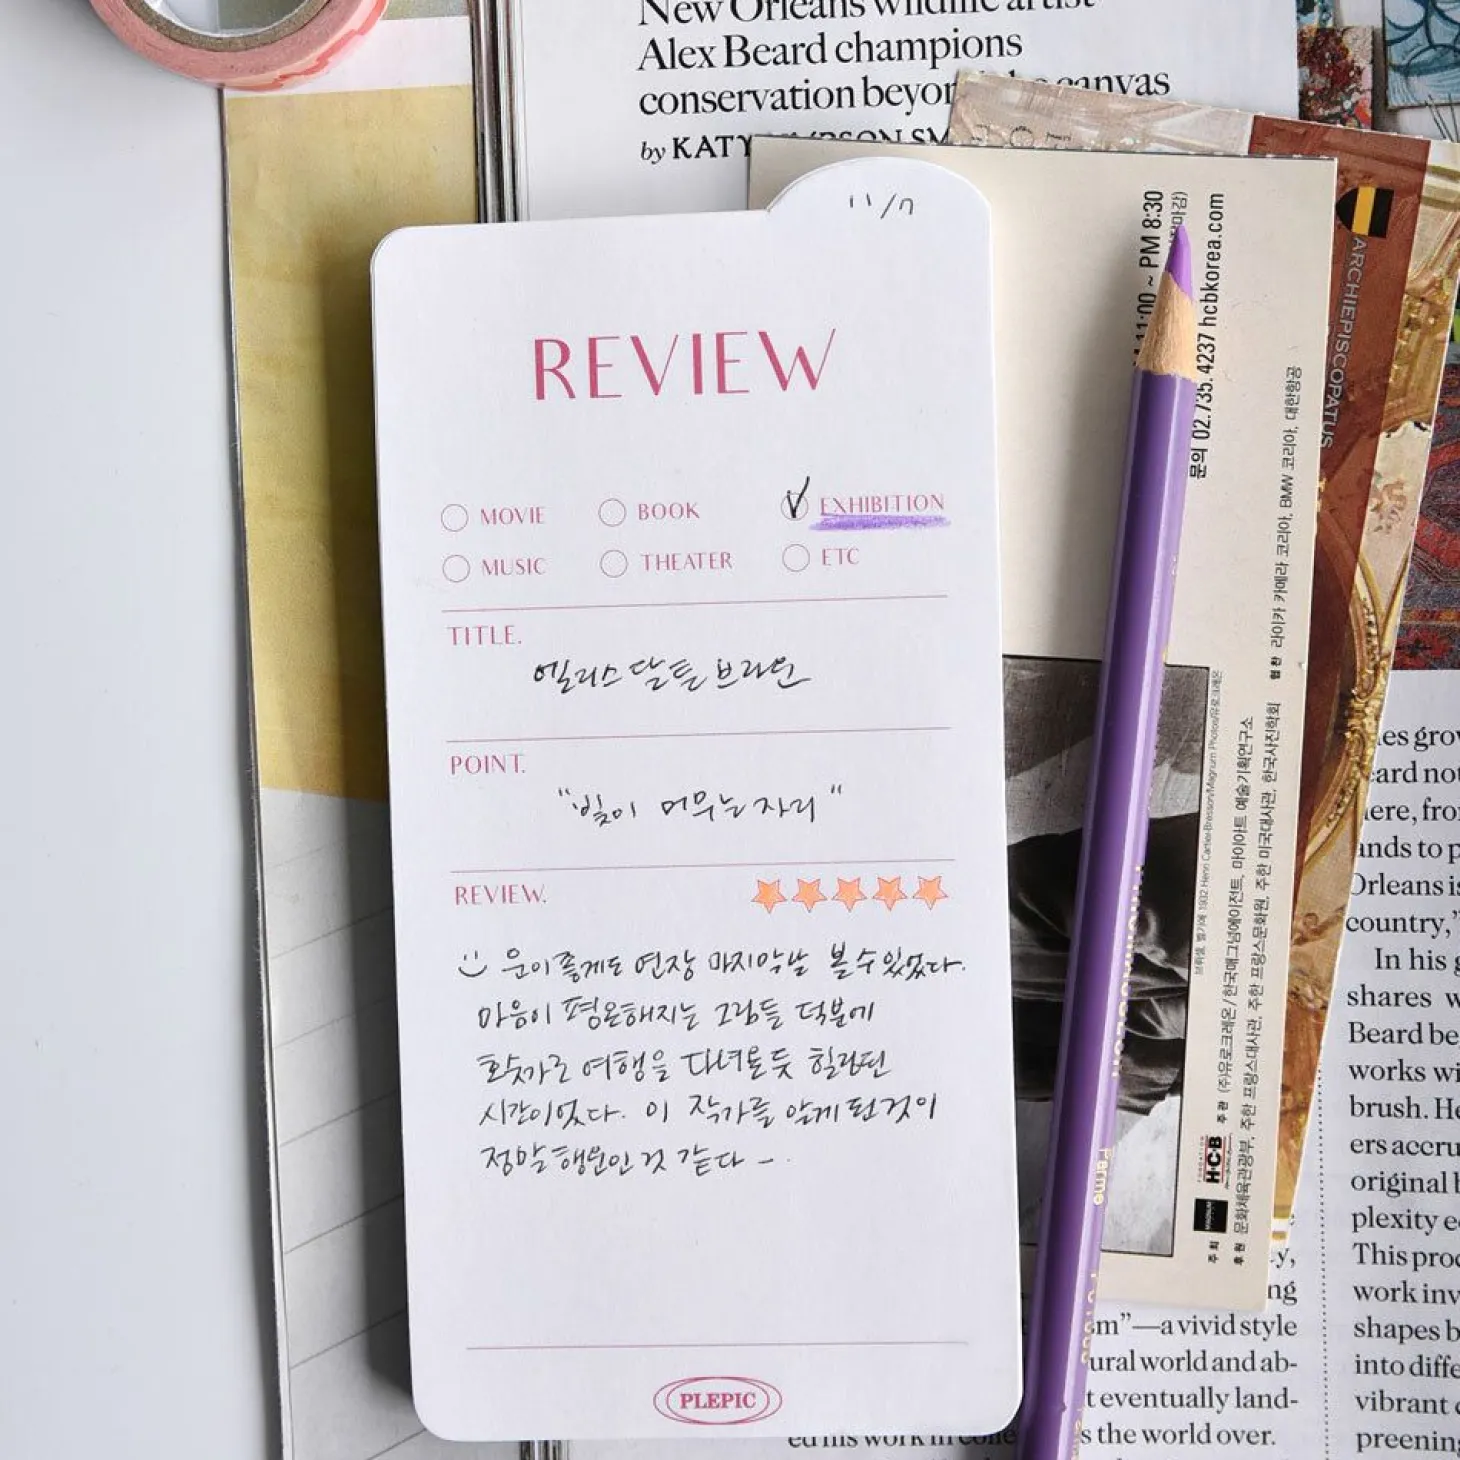 New Orleans wildlife artist
Alex Beard champions
conservation beyond the canvas
by KATY
11/7
REVIEW
MOVIE BOOK EXHIBITION
MUSIC THEATER ETC
TITLE.
엘리스 달튼 브라운
POINT.
"빛이 머무는 자리"
REVIEW.
운이좋게도 연장 마지막날 볼 수 있었다.
마음이 평온해지는 그림들 덕분에
호숫가로 여행을 다녀온듯 힐링된
시간이었다. 이 작가를 알게 된 것이
정말 행운인 것 같다 -.
PLEPIC
11:00 ~ PM 8:30
문의 02.735.4237 hcbkorea.com
라이카 카메라 코리아, BMW 코리아, 대한항공
브뤼셀, 벨기에 1932 Henri Cartier-Bresson/Magnum Photos/유로크레온
주관 (주)유로크레온 / 한국매그넘에이전트, 마이아트 예술기획연구소
후원 문화체육관광부, 주한 프랑스대사관, 주한 프랑스문화원, 주한 미국대사관, 한국사진학회
주최
FONDATION
H·C·B
ARCHIEPISCOPATUS
Orleans is
country,"
In his
shares
Beard
works
brush. He
ers accru
original
plexity
This
work
shapes
into
vibrant
preening
sm"—a vivid style
ural world and ab-
t eventually land-
s the world over.
ed his work in